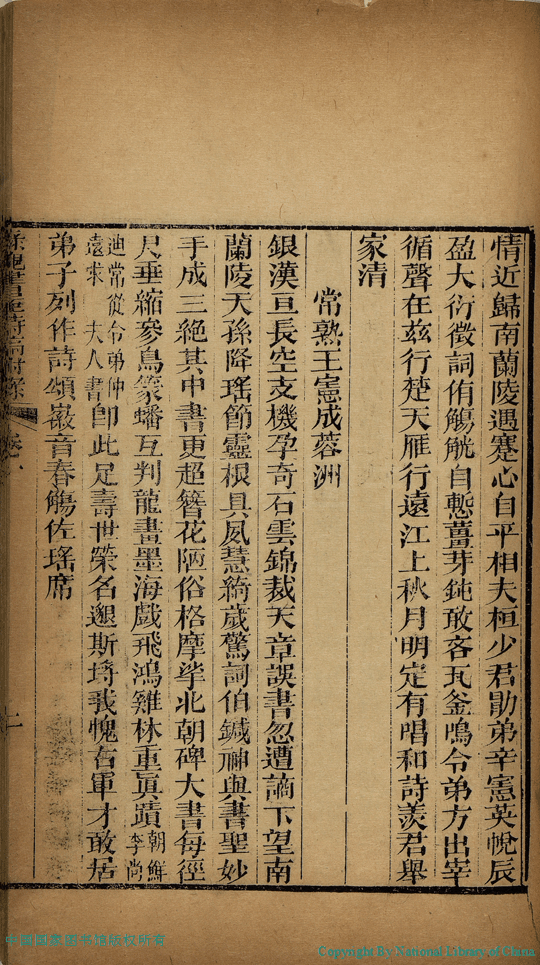 情近歸南蘭陵遇蹇心自平相夫桓少君勖弟辛憲英帨辰
盈大衍徵詞侑觴觥自慙薑芽鈍敢吝瓦釜鳴令弟方出宰
循聲在茲行楚天雁行遠江上秋月明定有唱和詩羨君舉
家清
常熟王憲成蓉洲
銀漢亘長空支機孕奇石雲錦裁天章誤書忽遭謫下望南
蘭陵天孫降瑤節靈根具夙慧綺歲驚詞伯鍼神與書聖妙
手成三絶其中書更超簪花陋俗格摩挲北朝碑大書每徑
尺垂縮參鳥篆蟠互判龍畫墨海戲飛鴻雞林重眞蹟朝鮮李尚
迪常從令弟仲遠求夫人書卽此足壽世榮名邈斯埓我愧右軍才敢居
弟子列作詩頌徽音春觴佐瑤席
卷一
二
中國國家图书馆版权所有
Copyright By National Library of China